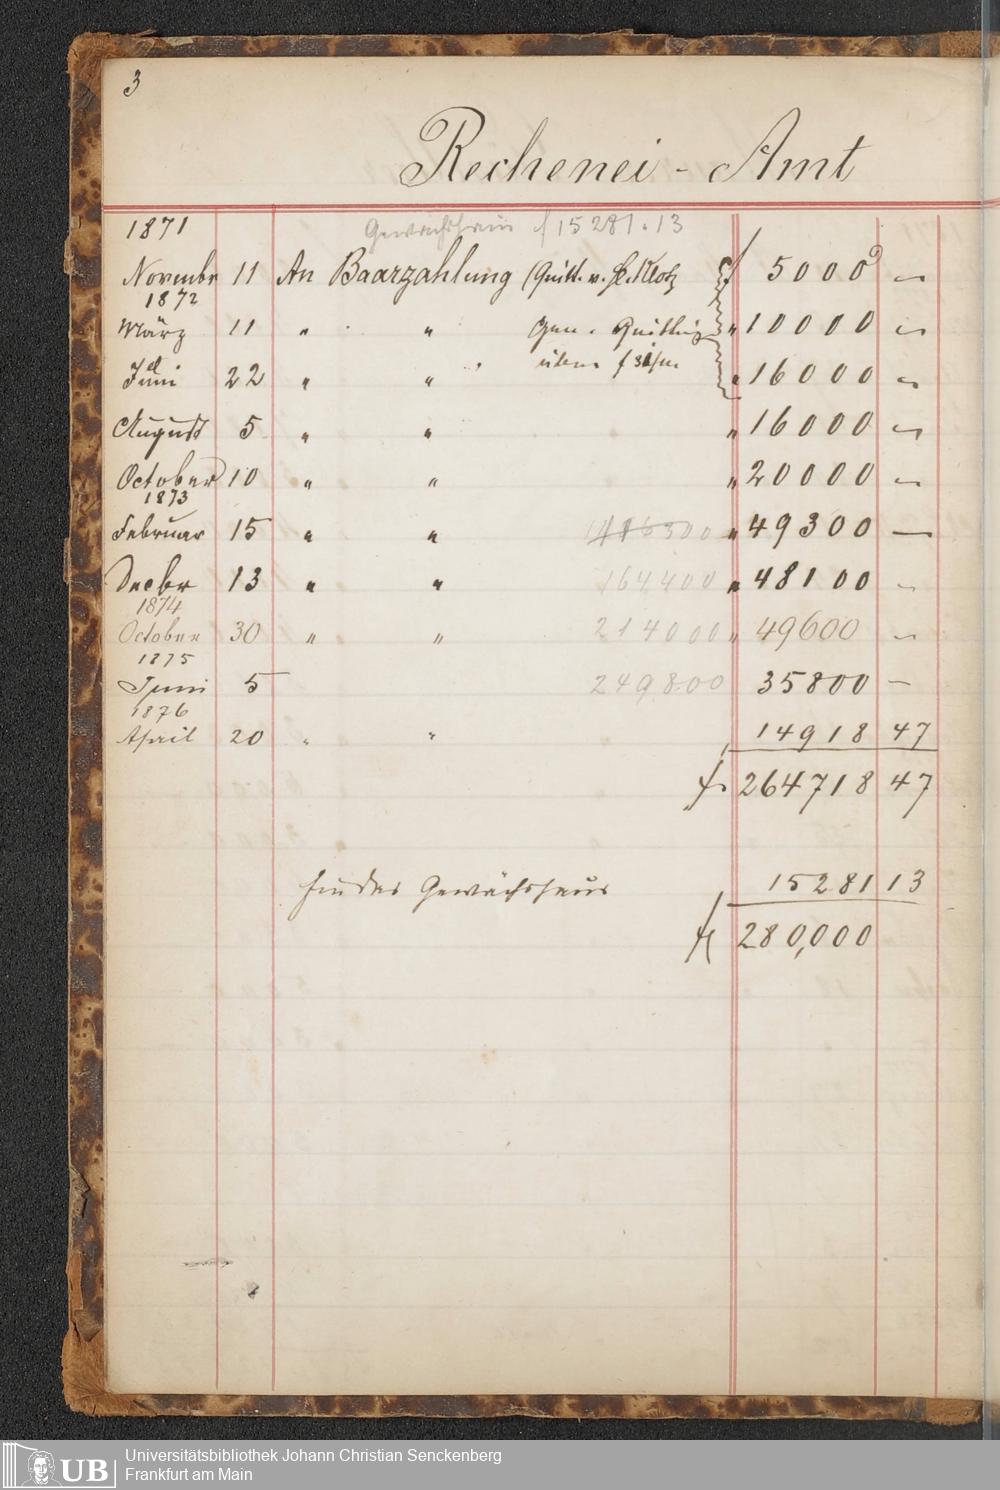 3
Rechenei-Amt
1871 Gewächshaus f 15281.13
Novmbr 11 An Baarzahlung (Quitt. v. H. Klotz f 5000 —
1872
März 11 " " Gen. Quittung " 10000 —
Juni 22 " " über f 31/m " 16000 —
August 5 " " " 16000 —
October 10 " " " 20000 —
1873
Februar 15 " " 116300 " 49300 —
Decbr 13 " " 164400 " 48100 —
1874
October 30 " " 214000 " 49600 —
1875
Juni 5 249800 35800 —
1876
April 20 " " 14918 47
f 264718 47
für das Gewächshaus 15281 13
f 280,000
UB
Universitätsbibliothek Johann Christian Senckenberg
Frankfurt am Main